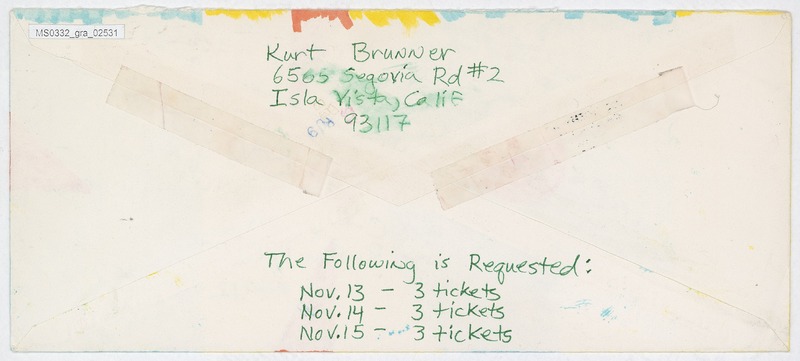 MS0332_gra_02531
Kurt Brunner
6565 Segovia Rd #2
Isla Vista, Calif
93117
The Following is Requested:
Nov. 13 - 3 tickets
Nov. 14 - 3 tickets
Nov. 15 - 3 tickets